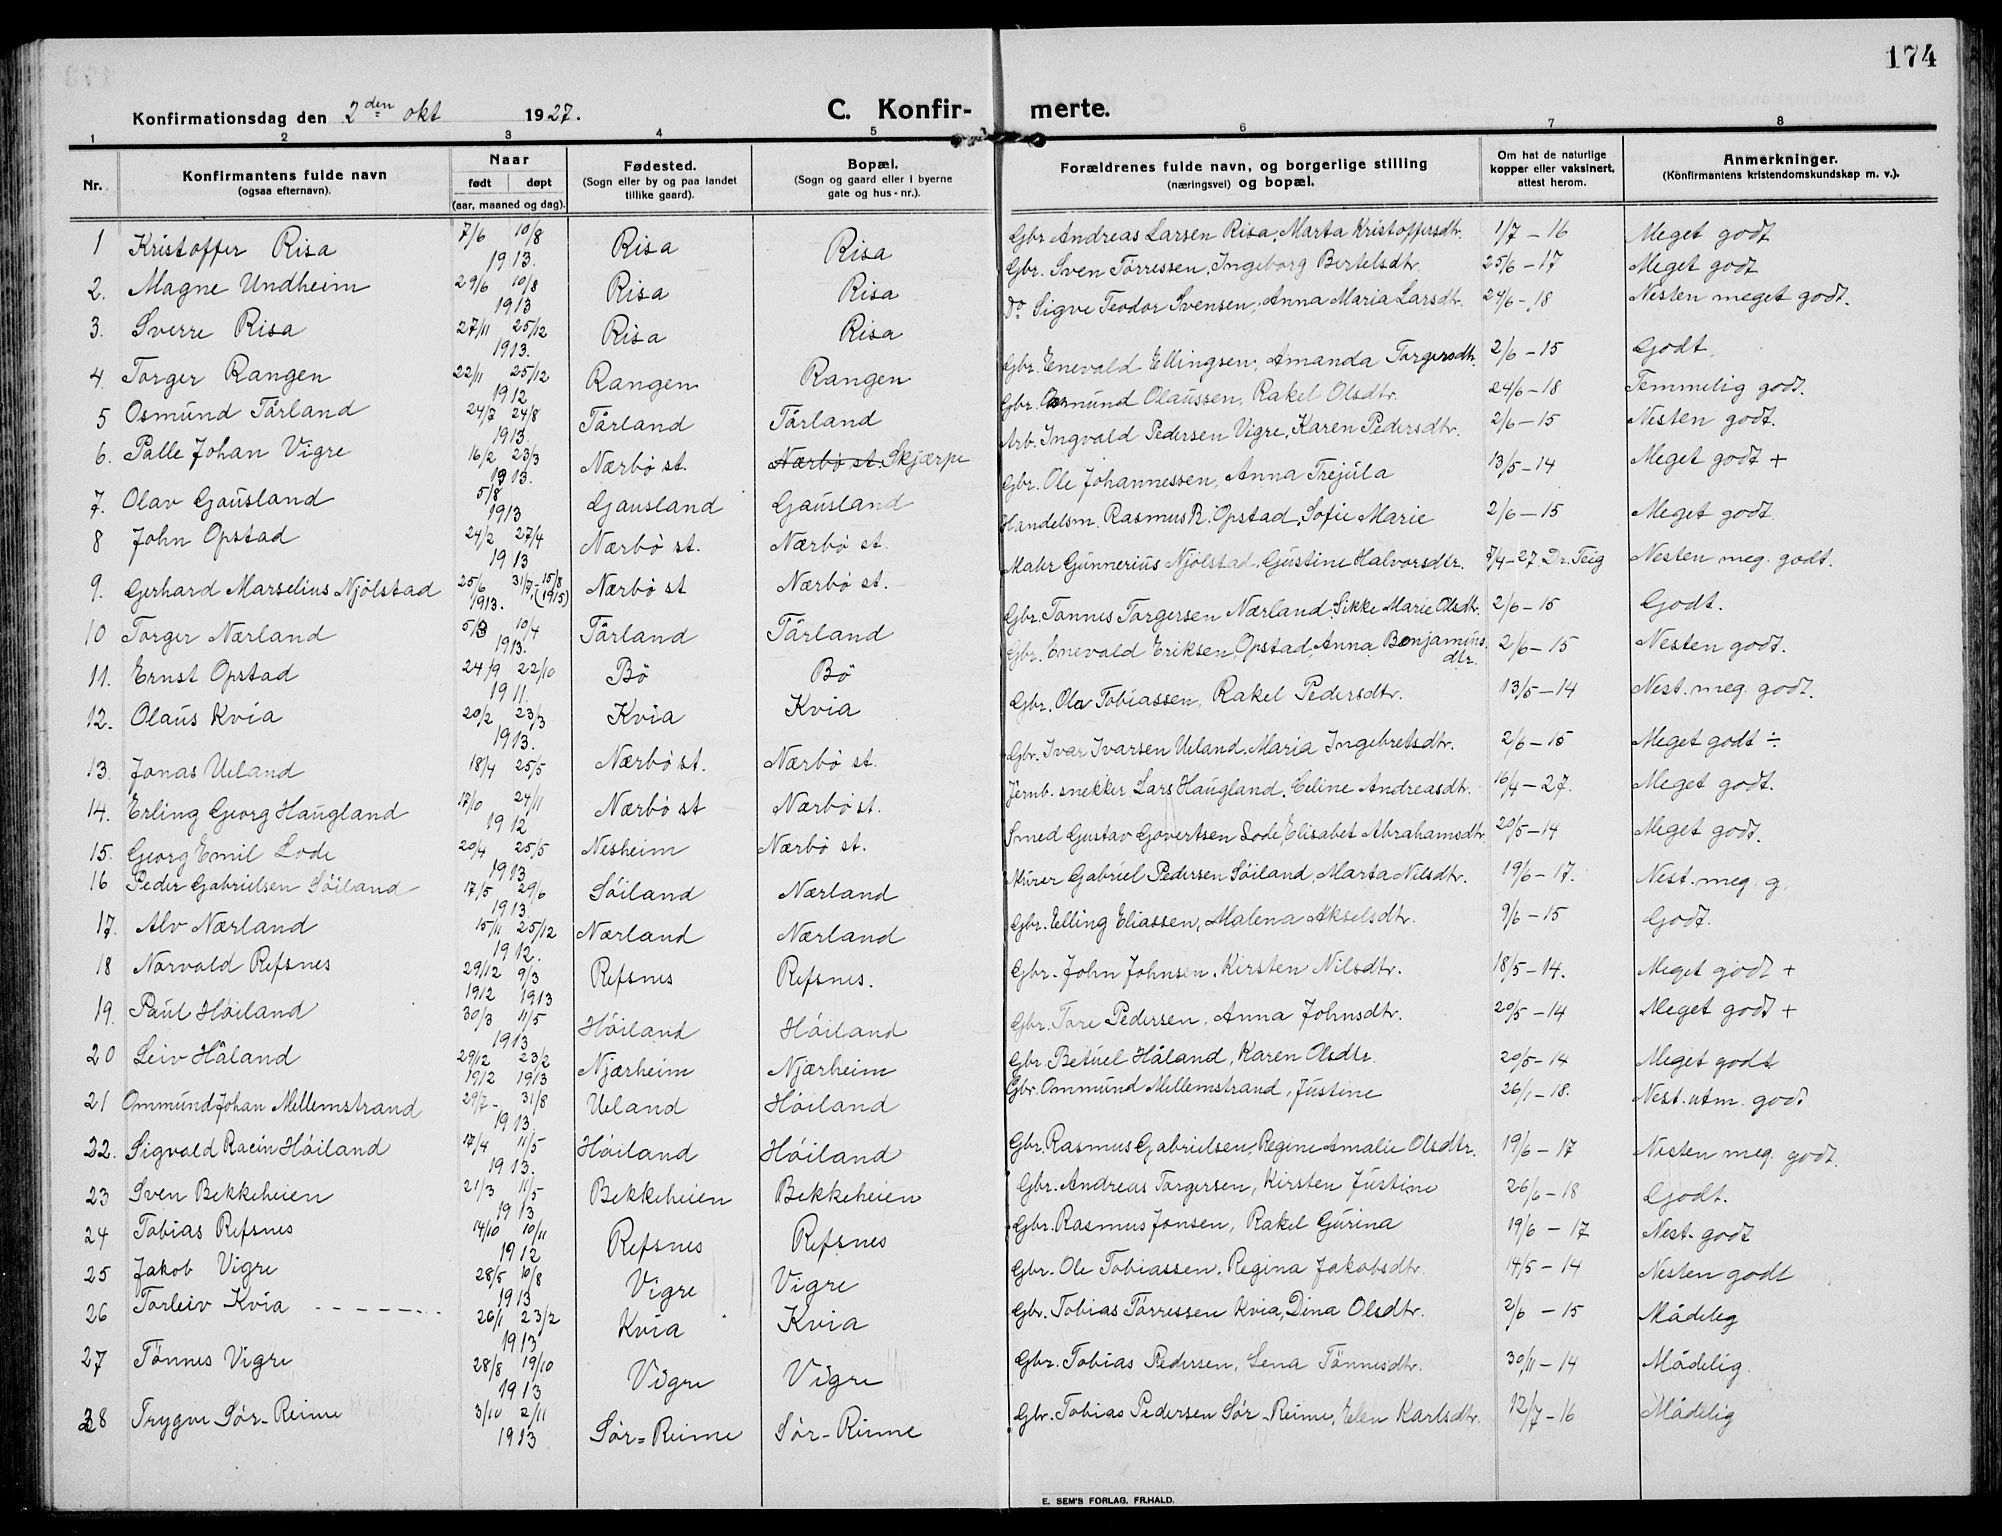 174
Konfirmationsdag den 2den okt 1927. C. Konfir- merte.
1 2 3 4 5 6 7 8
Nr. Konfirmantens fulde navn (ogsaa efternavn). Naar født døpt (aar, maaned og dag). Fødested. (Sogn eller by og paa landet tillike gaard). Bopæl. (Sogn og gaard eller i byerne gate og hus-nr.). Forældrenes fulde navn, og borgerlige stilling (næringsvei) og bopæl. Om hat de naturlige kopper eller vaksinert, attest herom. Anmerkninger. (Konfirmantens kristendomskundskap m. v.).
1 Kristoffer Risa 7/6 10/8 1913. Risa Risa Gbr Andreas Larsen Risa, Marta Kristoffersdtr. 1/7 - 16 Meget godt
2. Magne Undheim 29/6 10/8 1913 Risa Risa Gbr. Sven Torressen, Ingeborg Bertelsdtr. 25/6 - 17 Meget godt
3. Sverre Risa 27/11 25/12 1913. Risa Risa Do Sigve Teodor Svensen, Anna Maria Larsdtr. 24/6 - 18 Nesten meget godt.
4. Torger Rangen 22/11 25/12 1912 Rangen Rangen Gbr. Enevald Ellingsen, Amanda Torgersdtr. 2/6 - 15 Godt.
5 Osmund Tårland 24/7 24/8 1913. Tårland Tårland Gbr. Osmund Olaussen, Rakel Olsdtr. 24/6 - 18 Temmelig godt.
6. Palle Johan Vigre 16/2 23/3 1913. Nærbö st. Nærbö st. Skjærpe Arb. Ingvald Pedersen Vigre, Karen Pedersdtr. 2/6 - 15 Nesten godt.
7. Olav Gausland 5/8 1913 Gausland Gausland Gbr. Ole Johannessen, Anna Trejula 13/5 - 14 Meget godt +
8 John Opstad 24/2 27/4 1913 Nærbö st. Nærbö st. Handelsm. Rasmus R. Opstad, Sofie Marie 2/6 - 15 Meget godt
9. Gerhard Marselius Njölstad 25/6 31/7, - 15/8 (1915) 1913. Nærbö st Nærbö st. Maler Gunnerius Njölstad, Gustine Halvorsdtr. 7/4 - 27 Dr. Teig Nesten meg. godt.
10 Torger Nærland 5/3 10/4 1913. Tårland Tårland Gbr. Tønnes Torgersen Nærland, Sikke Marie Olsdtr. 2/6 - 15 Godt.
11. Ernst Opstad 24/9 22/10 1911. Bö Bö Gbr. Enevald Eriksen Opstad, Anna Benjaminsdtr. 2/6 - 15 Nesten godt.
12. Olaus Kvia 20/2 23/3 1913. Kvia Kvia Gbr. Ola Tobiassen, Rakel Pedersdtr. 13/5 - 14 Nest. meg. godt.
13. Jonas Ueland 18/4 25/5 Nærbö st. Nærbö st. Gbr. Ivar Ivarsen Ueland, Maria Ingebretsdtr. 2/6 - 15 Meget godt ÷
14. Erling Georg Haugland 17/10 24/11 1912 Nærbö st Nærbö st. Jernb. snekker Lars Haugland, Celine Andreasdtr. 16/4 - 27. Meget godt.
15. Georg Emil Lode 20/4 25/5 1913 Nesheim Nærbö st. Smed Gustav Govertsen Lode, Elisabet Abrahamsdtr 20/5 - 14 Meget godt.
16 Peder Gabrielsen Söiland 17/5 29/6 1913. Söiland Nærland Murer Gabriel Pedersen Söiland, Marta Nilsdtr. 19/6 - 17. Nest. meg. g.
17. Alv Nærland 15/11 25/12 1912. Nærland Nærland Gbr. Elling Eliassen, Malena Akselsdtr. 9/6 - 15 Godt.
18 Norvald Refsnes 29/12 1912 9/3 1913 Refsnes Refsnes. Gbr. John Johnsen, Kirsten Nilsdtr. 18/5 - 14. Meget godt +
19. Paul Höiland 30/3 11/5 1913 Höiland Höiland Gbr. Tore Pedersen, Anna Johnsdtr. 20/5 - 14 Meget godt +
20 Leiv Håland 29/12 1912 23/2 1913 Njærheim Njærheim Gbr. Betuel Håland, Karen Olsdtr. 20/5 - 14 Meget godt
21 Ommund Johan Mellemstrand 29/7 - 31/8 1913. Ueland Höiland Gbr. Ommund Mellemstrand, Justine 26/1 - 18. Nest. utm. godt
22. Sigvald Racin Höiland 17/4 11/5 1913. Höiland Höiland Gbr. Rasmus Gabrielsen, Regine Amalie Olsdtr. 19/6 - 17 Nesten meg. godt.
23 Sven Bekkeheien 21/3 11/5 1913 Bekkeheien Bekkeheien Gbr. Andreas Torgersen, Kirsten Justine 26/6 - 18 Godt.
24 Tobias Refsnes 14/10 10/11 1912 Refsnes Refsnes Gbr. Rasmus Jonsen, Rakel Gurina 19/6 - 17 Nest. godt
25 Jakob Vigre 28/5 10/8 1913 Vigre Vigre Gbr. Ole Tobiassen, Regina Jakobsdtr. 14/5 - 14 Nesten godt
26 Torleiv Kvia 26/1 23/2 1913 Kvia Kvia Gbr. Tobias Törressen Kvia, Dina Olsdtr. 2/6 - 15 Mådelig
27 Tönnes Vigre 28/8 19/10 1913 Vigre Vigre Gbr. Tobias Pedersen, Lena Tönnesdtr. 30/11 - 14 Mådelig.
28 Trygve Sör-Reime 3/10 2/11 1913 Sör-Reime Sör-Reime Gbr. Tobias Pedersen Sör-Reime, Elen Karlsdtr. 12/7 - 16 Mådelig
E. SEM'S FORLAG. FR.HALD.